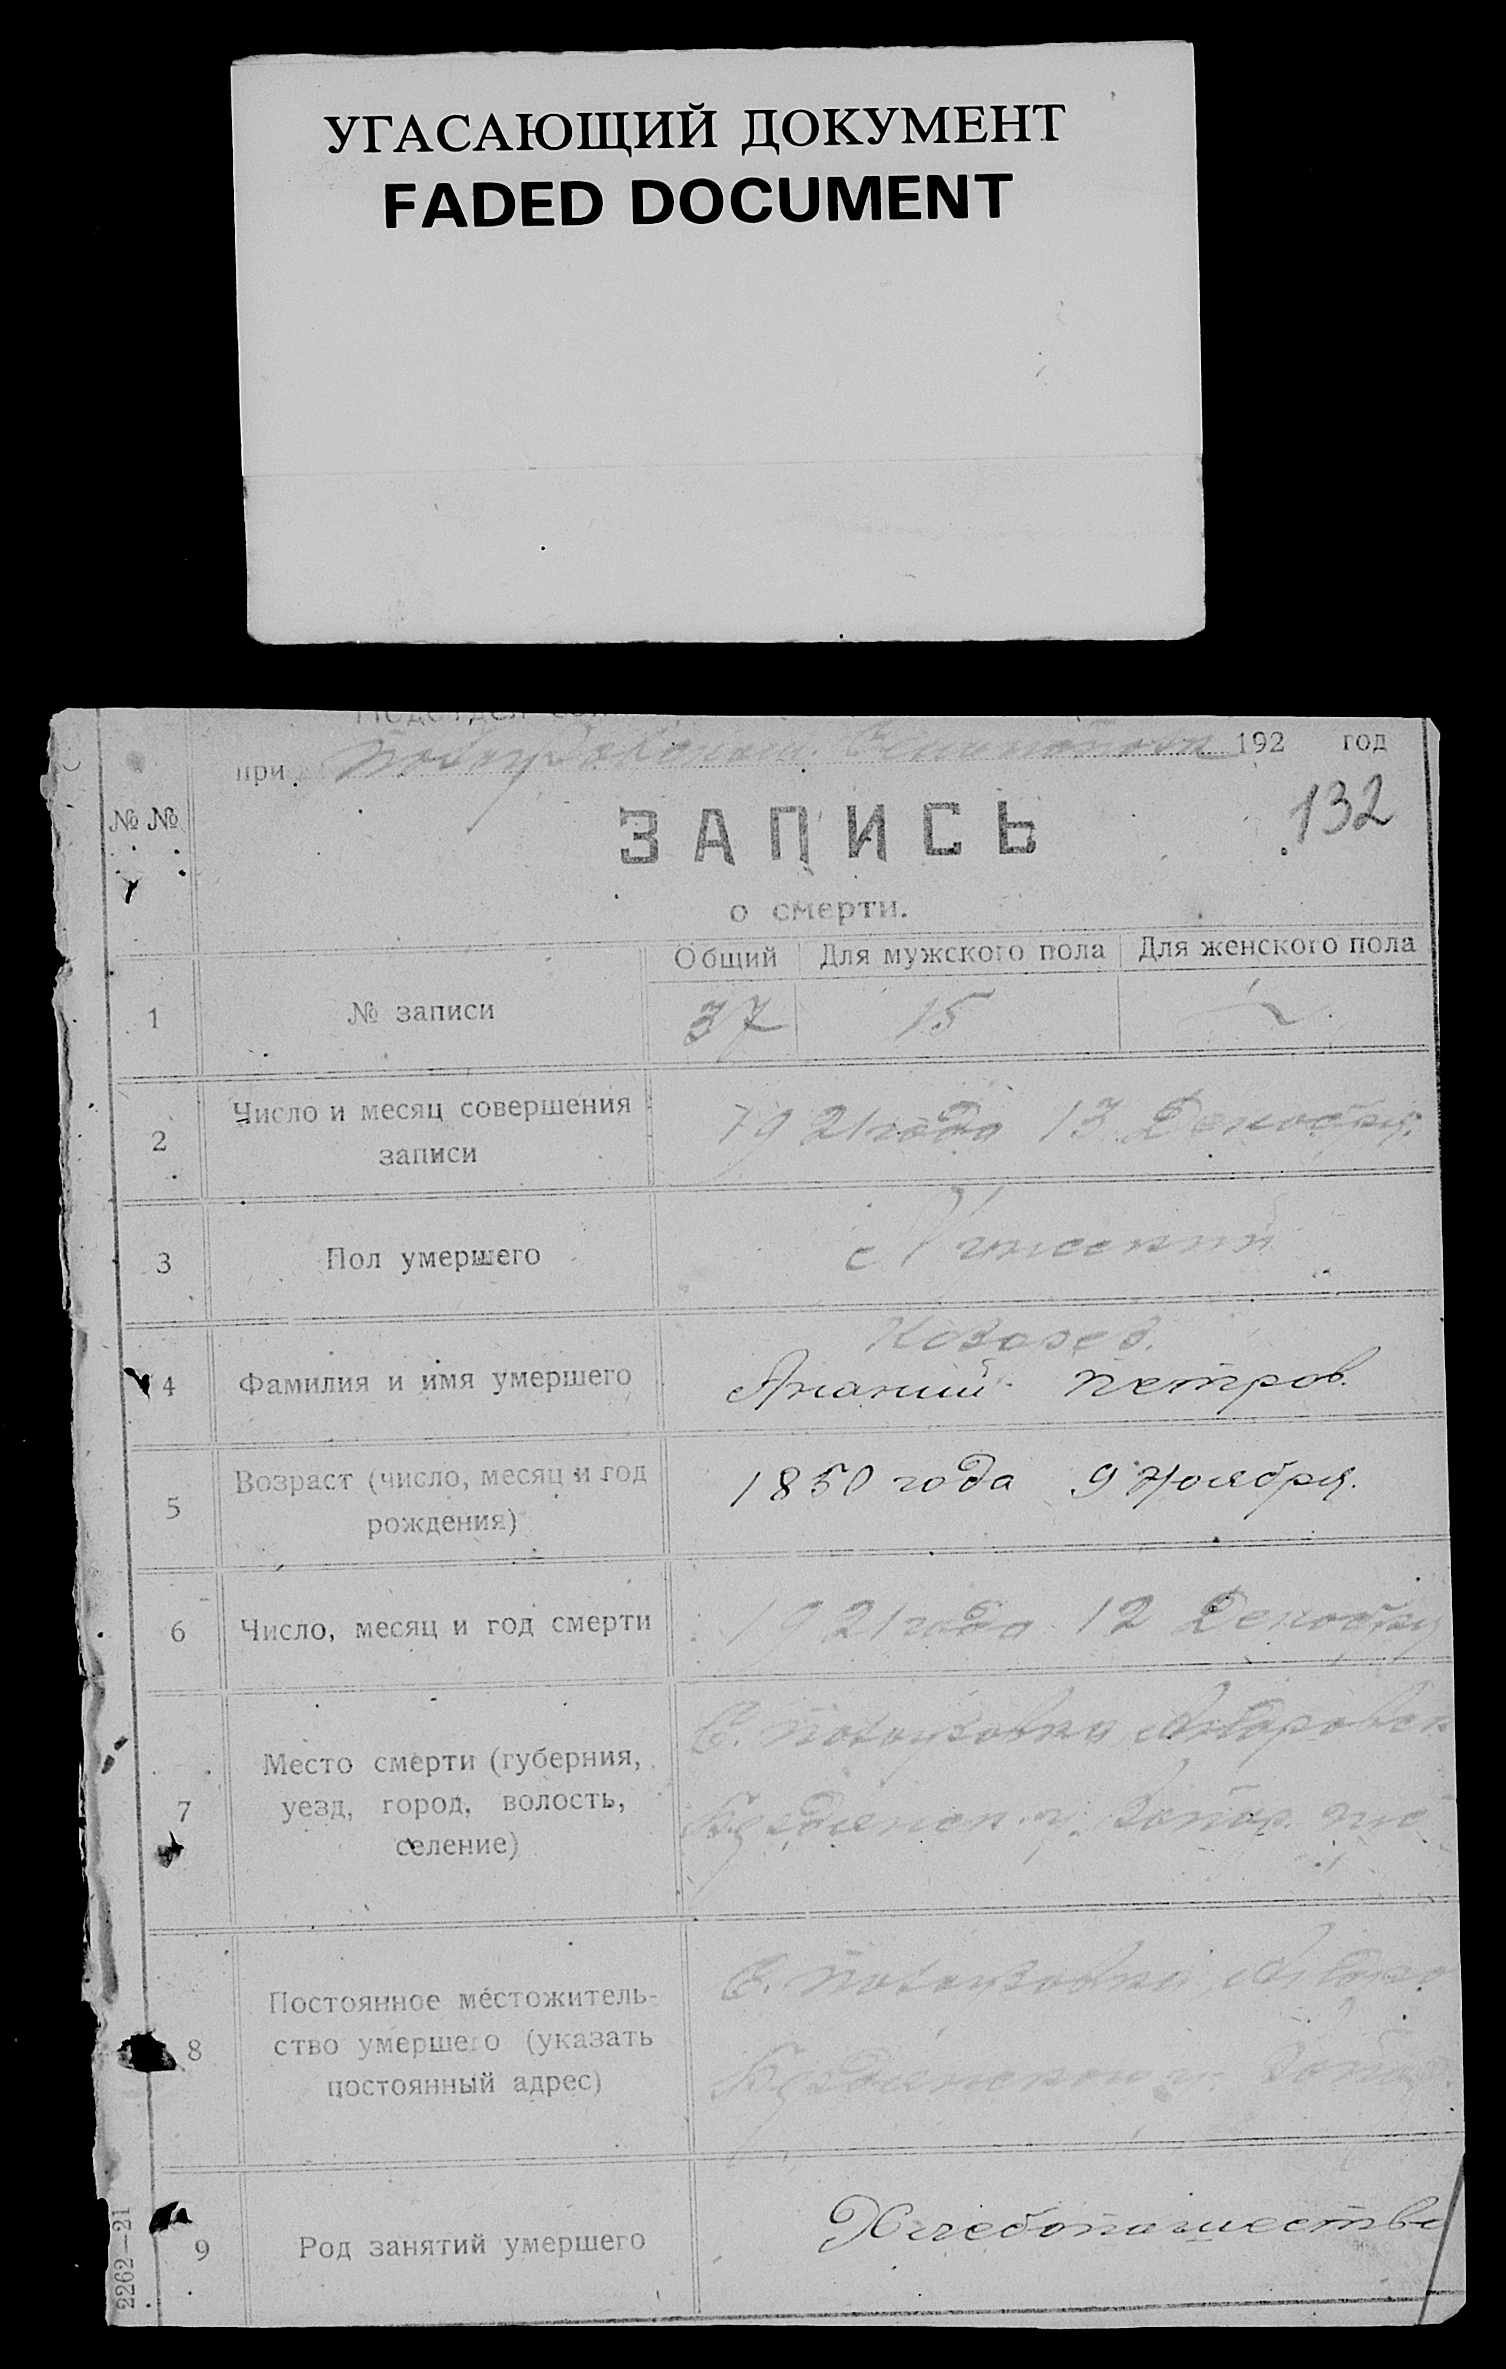 УГАСАЮЩИЙ ДОКУМЕНТ
FADED DOCUMENT
при 192 год
№ №
132
ЗАПИСЬ
о смерти.
Общий Для мужского пола Для женского пола
1 № записи 37 15
2 Число и месяц совершения
записи
1921 года 13 Декабря.
3 Пол умершего Мужеский
4 Фамилия и имя умершего
Ананий Петров.
5 Возраст (число, месяц и год
рождения)
1850 года 9 Ноября.
6 Число, месяц и год смерти 1921 года 12 Декабря
7 Место смерти (губерния,
уезд, город, волость,
селение)
С.
Бердянск. у. Запор. губ
8 Постоянное местожитель-
ство умершего (указать
постоянный адрес)
С.
Запор.
9 Род занятий умершего Хлебопашество
2262—21